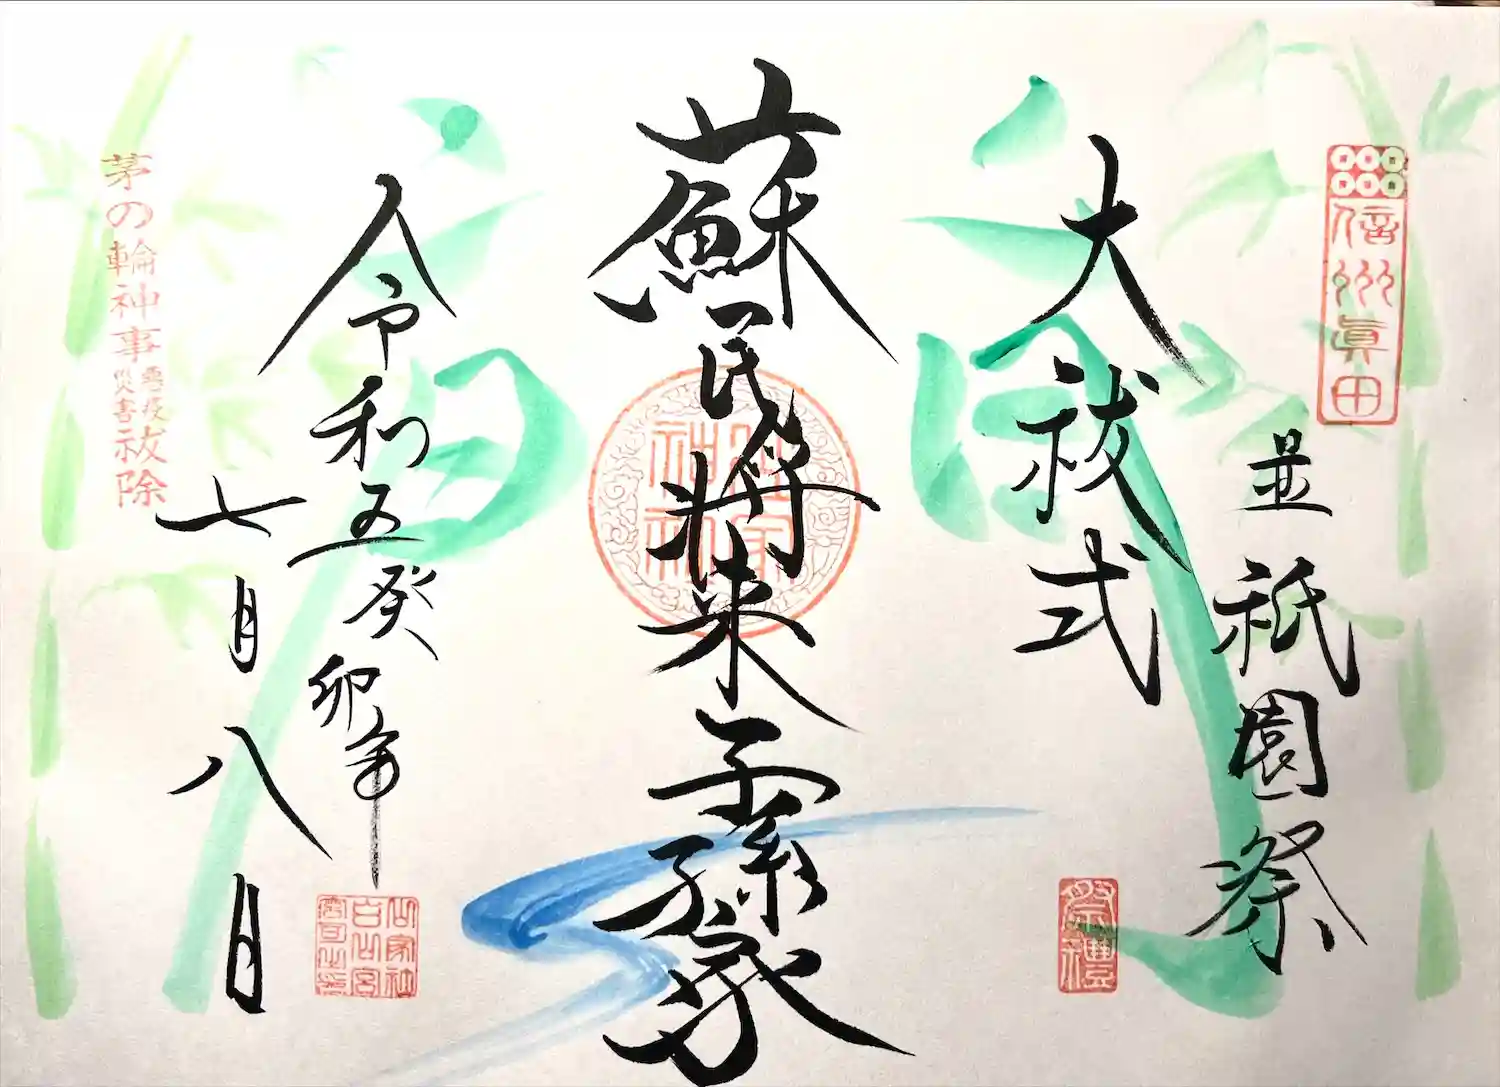 信州眞田
並祇園祭
大祓式
祭禮
蘇民将来子孫家
令和五癸卯年
七月八日
茅の輪神事 悪疫災害 祓除